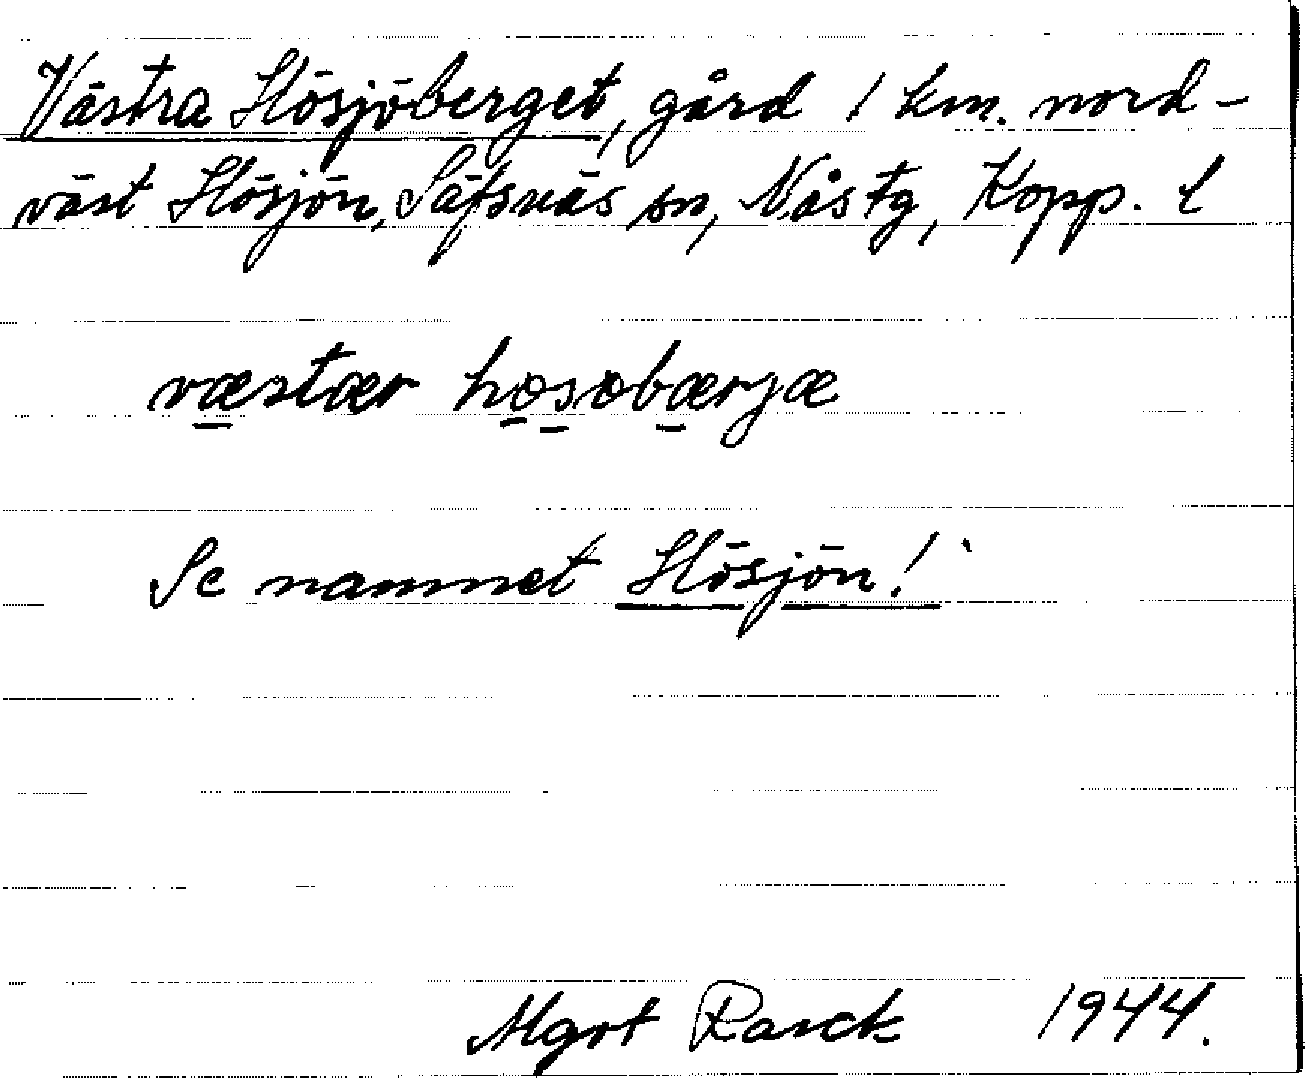 Västra Hösjöberget, gård 1 km. nord-
väst Hösjön, Säfsnäs sn, Nås tg, Kopp. l
væstær hosobærjæ
Se namnet Hösjön!
Algot Rarck 1944.